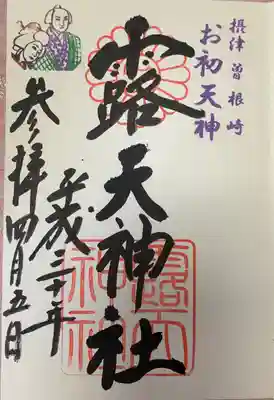 摂津曽根崎
お初天神
露天神社
平成三十年
参拝四月五日
露天
神社